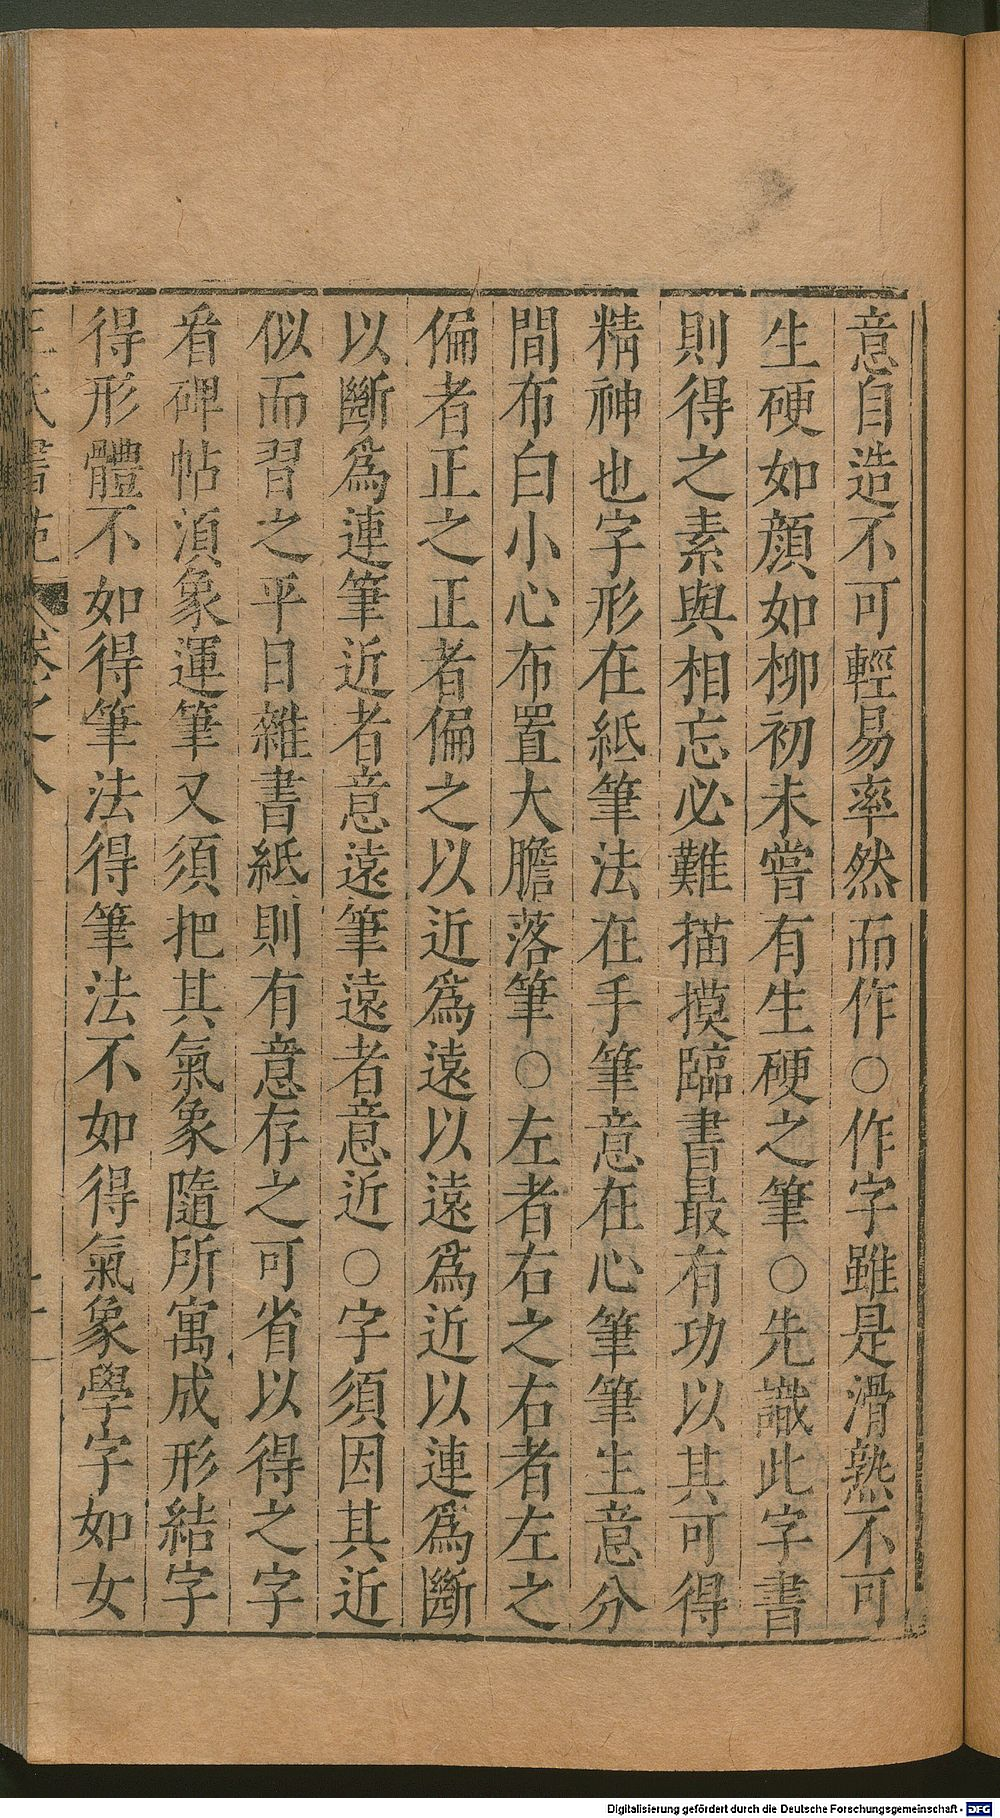 意自造不可輕易率然而作○作字雖是滑熟不可
生硬如顔如柳初未嘗有生硬之筆○先識此字書
則得之素與相忘必難描摸臨書最有功以其可得
精神也字形在紙筆法在手筆意在心筆筆生意分
間布白小心布置大膽落筆○左者右之右者左之
偏者正之正者偏之以近爲遠以遠爲近以連爲斷
以斷爲連筆近者意遠筆遠者意近○字須因其近
似而習之平日雜書紙則有意存之可省以得之字
看碑帖湏象運筆又須把其氣象隨所寓成形結字
得形體不如得筆法得筆法不如得氣象學字如女
王氏書苑 卷之八
Digitalisierung gefördert durch die Deutsche Forschungsgemeinschaft - DFG